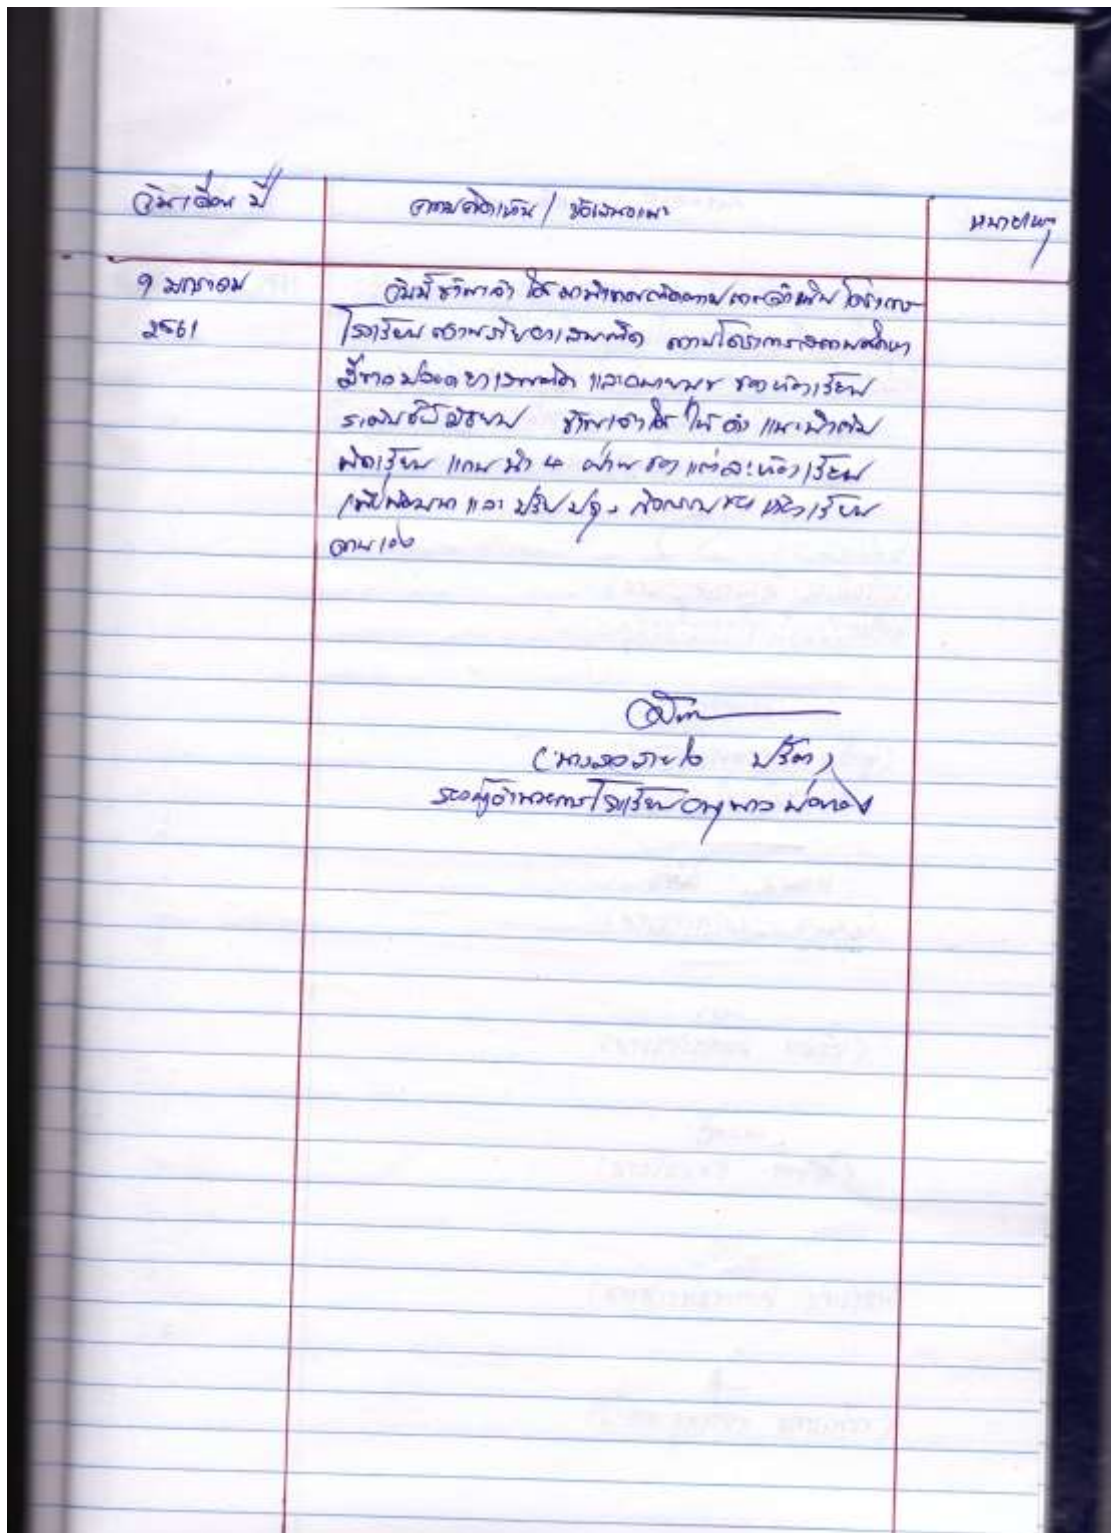 วันเดือน ปี
ความคิดเห็น / ข้อเสนอแนะ
หมายเหตุ
9 มกราคม
2561
วันนี้ข้าพเจ้า ได้มานิเทศติดตามการดำเนินโครงการ
โรงเรียน ยาเสพติด ตามโครงการสถานศึกษา
สีขาวปลอดยาเสพติด และอบายมุข ของห้องเรียน
ระดับชั้นมัธยม ข้าพเจ้าได้ ให้คำ แนะนำกับ
นักเรียน แกนนำ 4 ฝ่าย ของแต่ละห้องเรียน
เพื่อพัฒนา และ ปรับปรุง ห้องเรียน
ตนเอง
ปรีดา)
รองผู้อำนวยการโรงเรียน